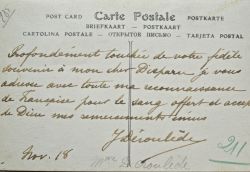 POST CARD Carte Postale POSTKARTE
BRIEFKAART — POSTKAART
CARTOLINA POSTALE — ОТКРЫТОЕ ПИСЬМО — TARJETA POSTAL
Profondément touchée de votre fidèle
souvenir à mon cher Disparu, je vous
adresse avec toute ma reconnaissance
de Française pour le sang offert et
de Dieu mes remerciements émus
J Déroulède
Nov. 18
Mme Déroulède
211